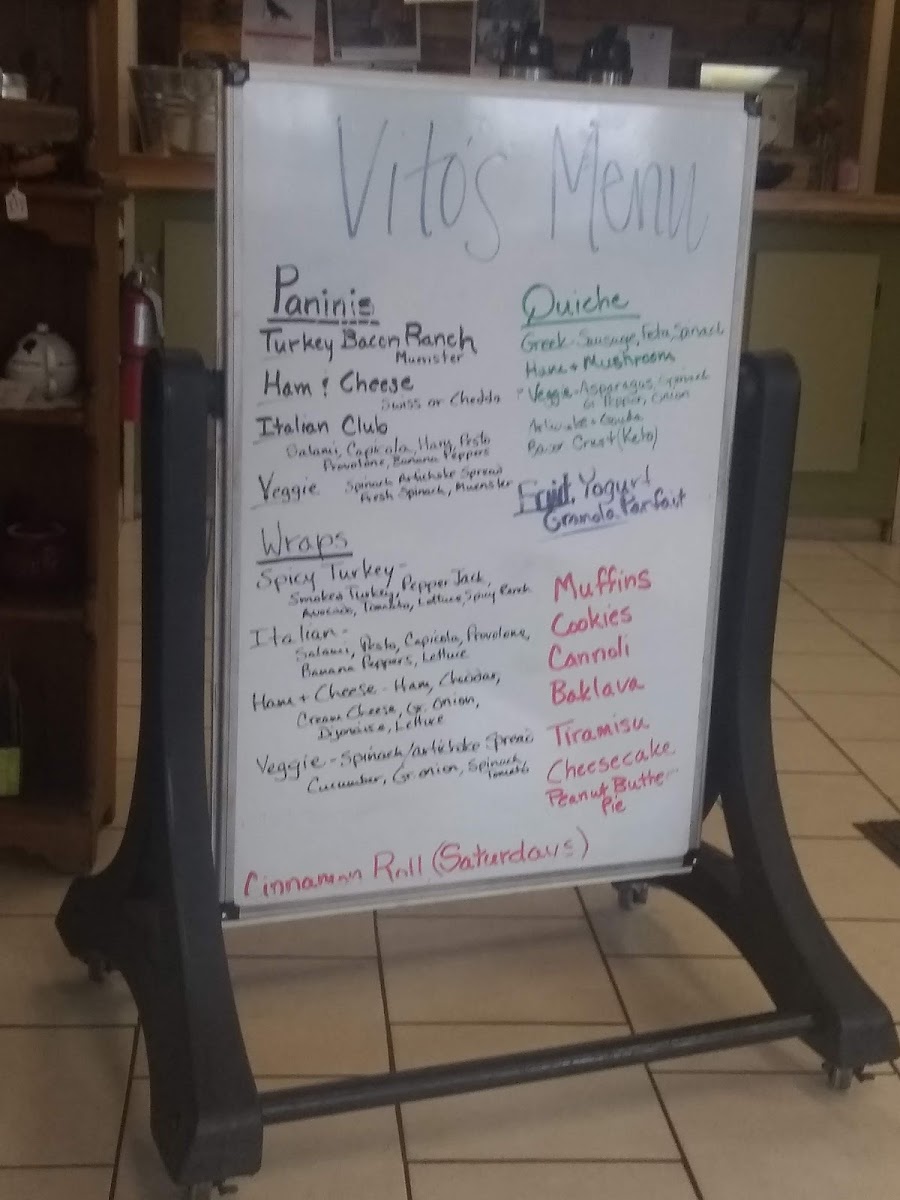 Vito's Menu
Paninis
Turkey Bacon Ranch
Munister
Ham & Cheese
Swiss or Chedda
Italian Club
Salami, Capicola, Ham, Pesto
Provolone, Banana Peppers
Veggie Spinach Artichoke Spread
Fresh Spinach, Muenster
Wraps
Spicy Turkey-
Smoked Turkey, Pepper Jack,
Avocado, Tomato, Lettuce, Spicy Ranch
Italian-
Salami, Pesto, Capicola, Provolone,
Banana Peppers, Lettuce
Ham + Cheese - Ham, Cheddar,
Cream Cheese, Gr. Onion,
Dijonaise, Lettuce
Veggie - Spinach/artichoke Spread
Cucumber, Gr onion, Spinach
Tomato
Quiche
Greek-Sausage, Feta, Spinach
Ham + Mushroom
Veggie-Asparagus, Spinach
Pepper, Onion
Artichoke + Gouda
Crust (Keto)
Fruit, Yogurt
Granola Parfait
Muffins
Cookies
Cannoli
Baklava
Tiramisu
Cheesecake
Peanut Butter
Pie
Cinnamon Roll (Saturdays)